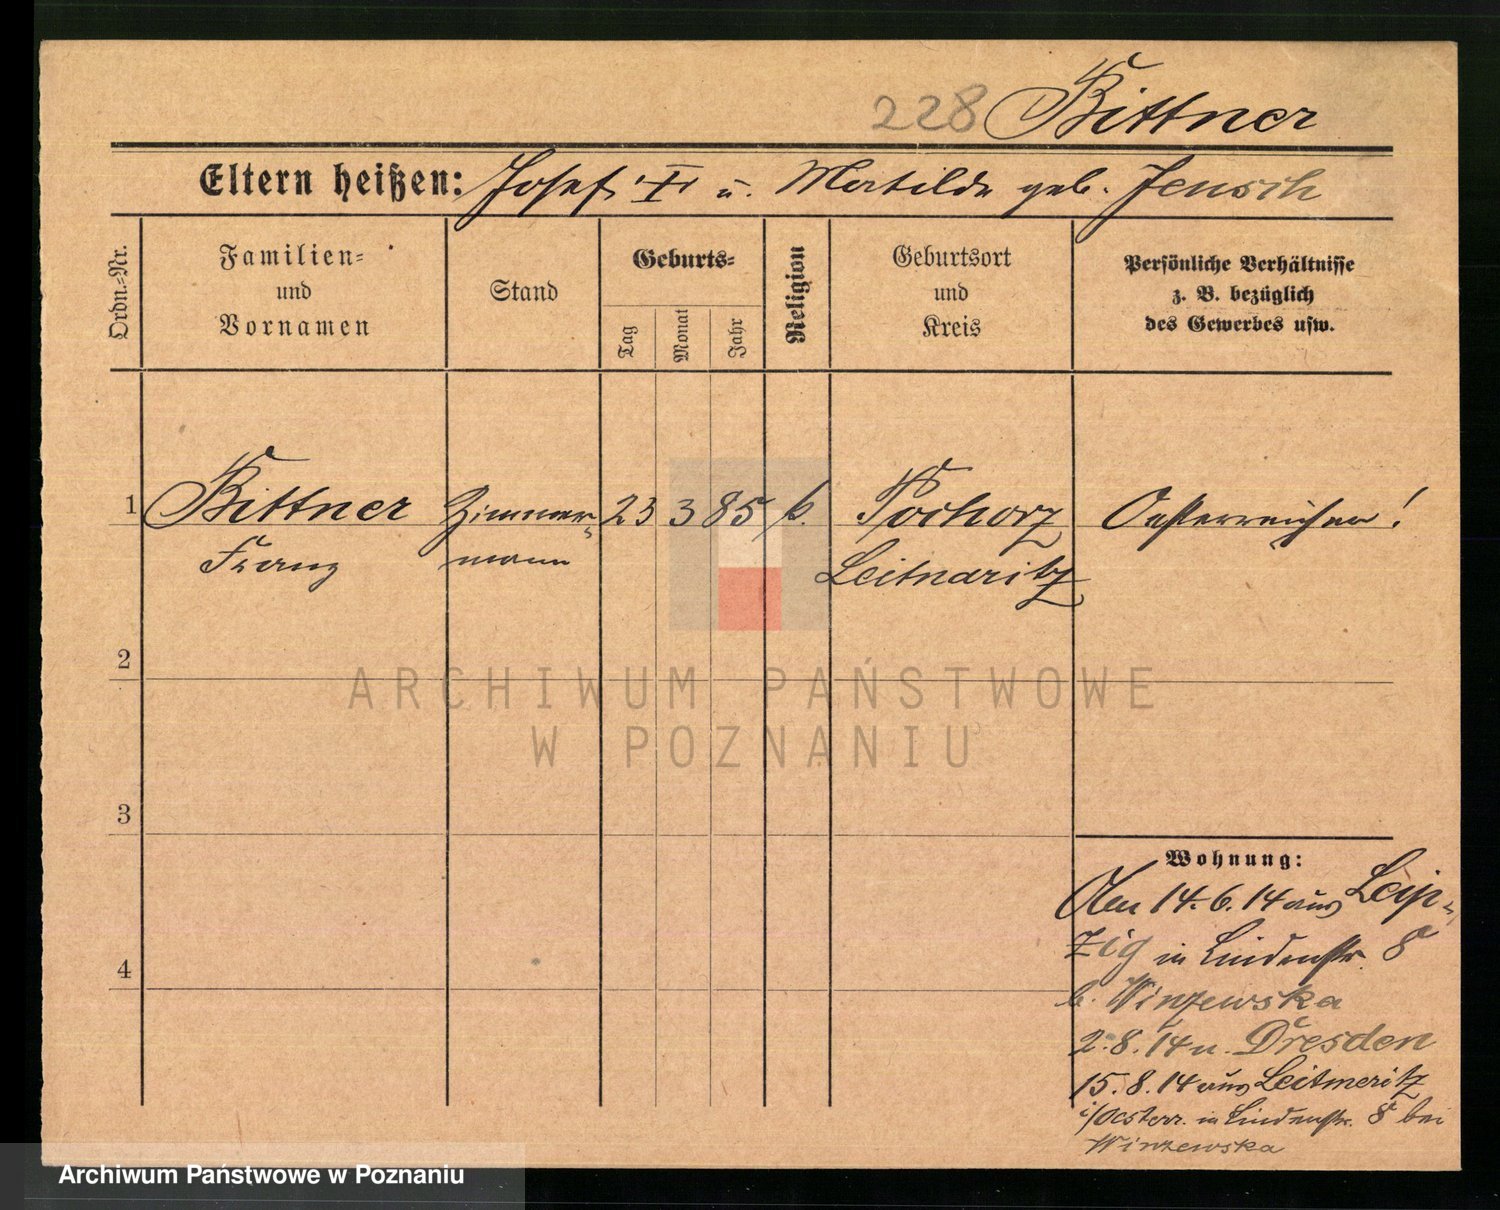 228 Bittner
Eltern heißen: Josef I u. Matilde geb. Jensch
Ordn.=Nr.
Familien=
und
Vornamen
Stand
Geburts=
Tag
Monat
Jahr
Religion
Geburtsort
und
Kreis
Persönliche Verhältnisse
z. B. bezüglich
des Gewerbes usw.
1 Bittner Zimmer= 23 3 85 k. Pochorz Oesterreicher!
Franz mann Leitmaritz
2
3
4
Wohnung:
Am 14.6.14 aus Leip=
zig in Lindenstr. 8
b. Winzewska
2.8.14 n. Dresden
15.8.14 aus Leitmeritz
i/Oesterr. in Lindenstr. 8 bei
Winzewska
ARCHIWUM PAŃSTWOWE
W POZNANIU
Archiwum Państwowe w Poznaniu